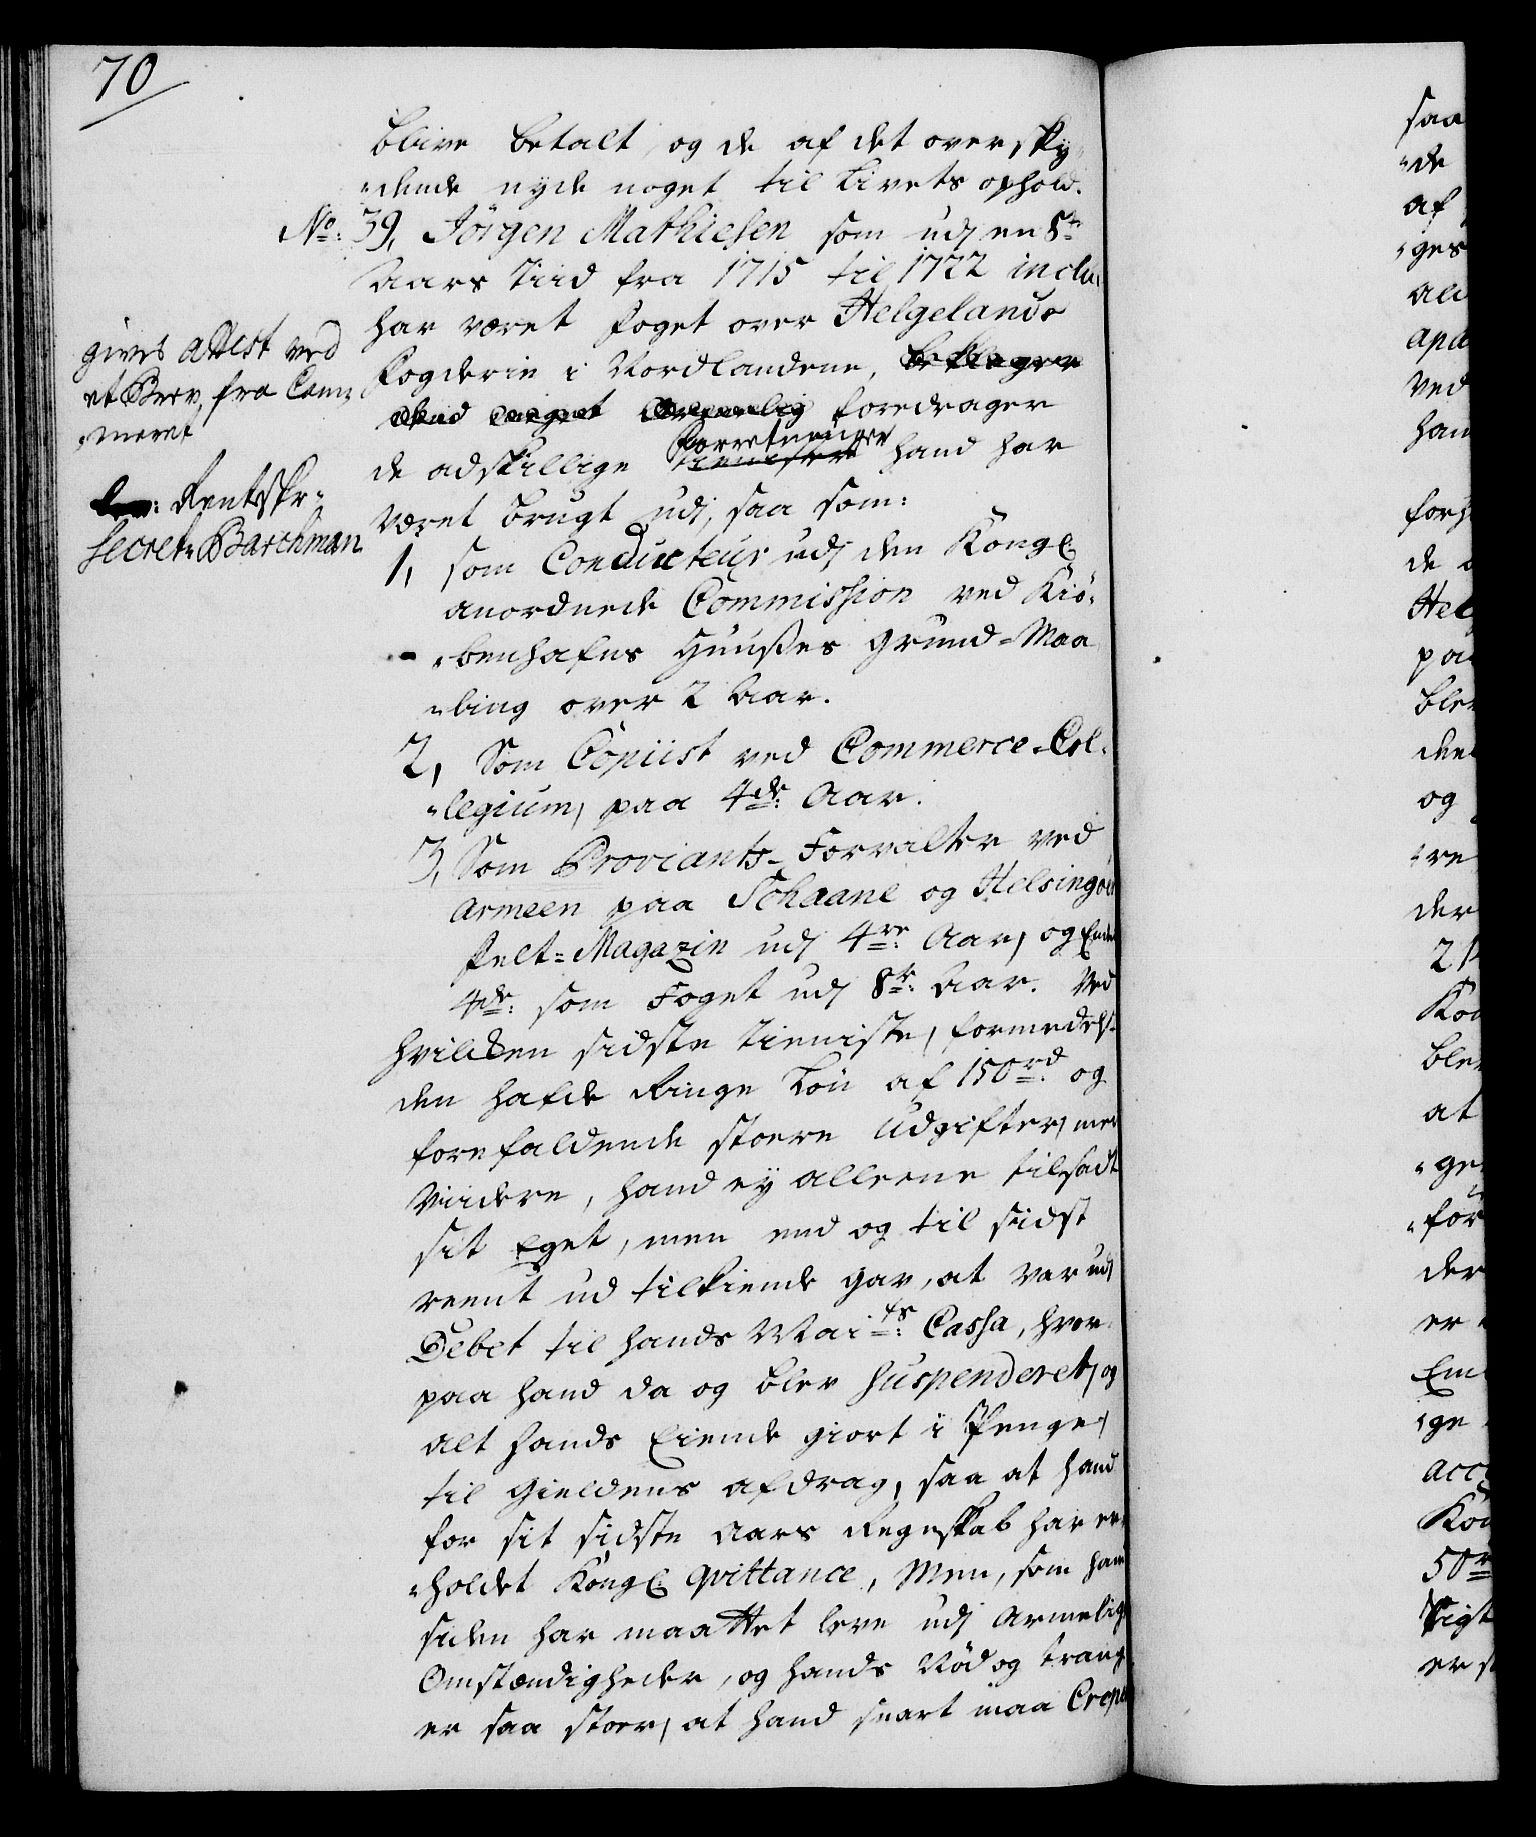 70
blive betalt, og de af det oversky-
"dende nyde noget til Livets ophold.
No: 39, Jörgen Mathiesen som udj en 8te
Aars Tiid fra 1715 til 1722 inclu:
har været foget over Helgelands
Fogderie i Nordlandene, beklager
foredrager
de adskillige Forretninger tienister hand har
været brugt udj, saa som:
gives attest ved
et Brev, fra Cam-
"meret
Rentskr:
Secret: Barchman
1, som Conducteur udj den Kongl:
anordnede Commission ved Kiö-
"benhafns Huußes Grund-Maa
"ling over 2 Aar.
2, Som Copiist ved Commerce-Col-
"legium, paa 4de: Aar.
3, Som Proviants-Forvalter ved
Armeen paa Schaane og Helsingöer
felt-Magazin udj 4re: Aar, og Ende
4de: som Foget udj 8te: Aar. Ved
hvilcken sidste tieniste, formedelst
den hafde Ringe Lön af 150rd: og
forefaldende stoere Udgifter, med
Viidere, hand ey alleene tilsadt
sit Eget, men end og til sidst
reent ud tilkiende gav, at var udj
Debet til hands Maits: Cassa, hvor-
paa hand da og blev suspenderet, og
alt hands Eiende giort i Penge,
til Gieldens afdrag, saa at hand
for sit sidste Aars Regnskab har er-
"holdet Kongl: qvittance, Men, som hand
siden har maattet leve udj armelig
Omstændigheder, og hands Nöd og trang
er saa stoer, at hand snart maa Crepe
saa
"de
af
"ges
ald
apa
Ved
han
forh
de
Hel
paa
blev
den
og
"re
der
21
Kon
blev
at
"ge
"för
der
er
Em
"ge
acc
Kon
50rd
er s